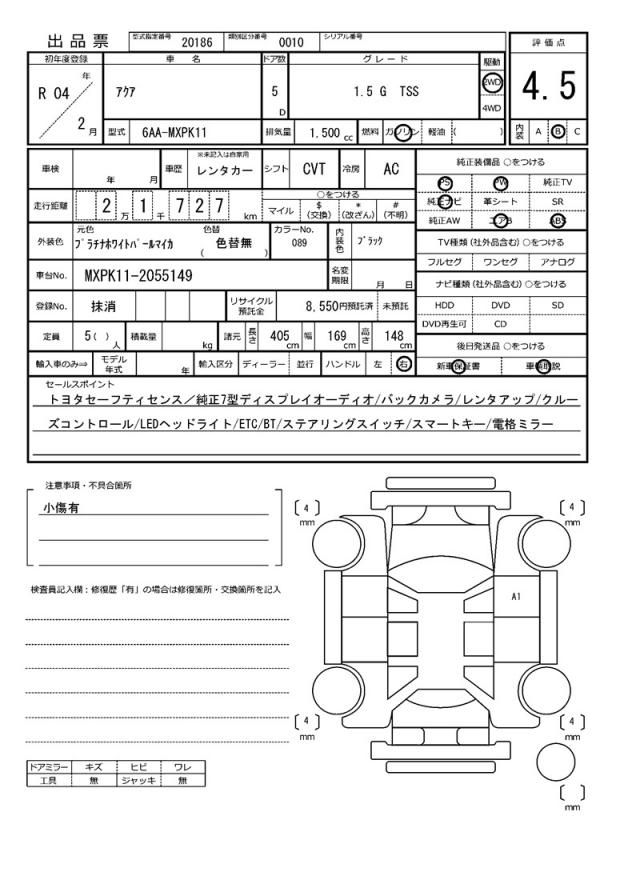 出品票
型式指定番号 20186 類別区分番号 0010 シリアル番号
評価点
4.5
内装 A B C
初年度登録 車名 ドア数 グレード 駆動
R 04 年 2 月
アクア
5 D
1.5 G TSS
2WD
4WD
型式 6AA-MXPK11 排気量 1.500 cc 燃料 ガソリン 軽油 ( )
車検 年 月 車歴 ※未記入は自家用 レンタカー シフト CVT 冷房 AC
走行距離 2 万 1 千 7 2 7 km
○をつける
マイル $ (交換) * (改ざん) # (不明)
外装色 元色 プラチナホワイトパールマイカ 色替 ( 色替無 ) カラーNo. 089 内装色 ブラック
車台No. MXPK11-2055149 名変期限 月 日
登録No. 抹消 リサイクル預託金 8,550円預託済 未預託
定員 5( ) 人 積載量 kg 諸元 長さ 405 cm 幅 169 cm 高さ 148 cm
輸入車のみ⇒ モデル年式 年 輸入区分 ディーラー 並行 ハンドル 左 右
純正装備品 ○をつける
PS PW 純正TV
純正ナビ 革シート SR
純正AW エアB ABS
TV種類 (社外品含む) ○をつける
フルセグ ワンセグ アナログ
ナビ種類 (社外品含む) ○をつける
HDD DVD SD
DVD再生可 CD
後日発送品 ○をつける
新車保証書 車輌取説
セールスポイント
トヨタセーフティセンス/純正7型ディスプレイオーディオ/バックカメラ/レンタアップ/クルー
ズコントロール/LEDヘッドライト/ETC/BT/ステアリングスイッチ/スマートキー/電格ミラー
注意事項・不具合箇所
小傷有
検査員記入欄：修復歴「有」の場合は修復箇所・交換箇所を記入
ドアミラー キズ ヒビ ワレ
工具 無 ジャッキ 無
[ 4 ] mm
[ 4 ] mm
A1
[ 4 ] mm
[ 4 ] mm
[ ] mm